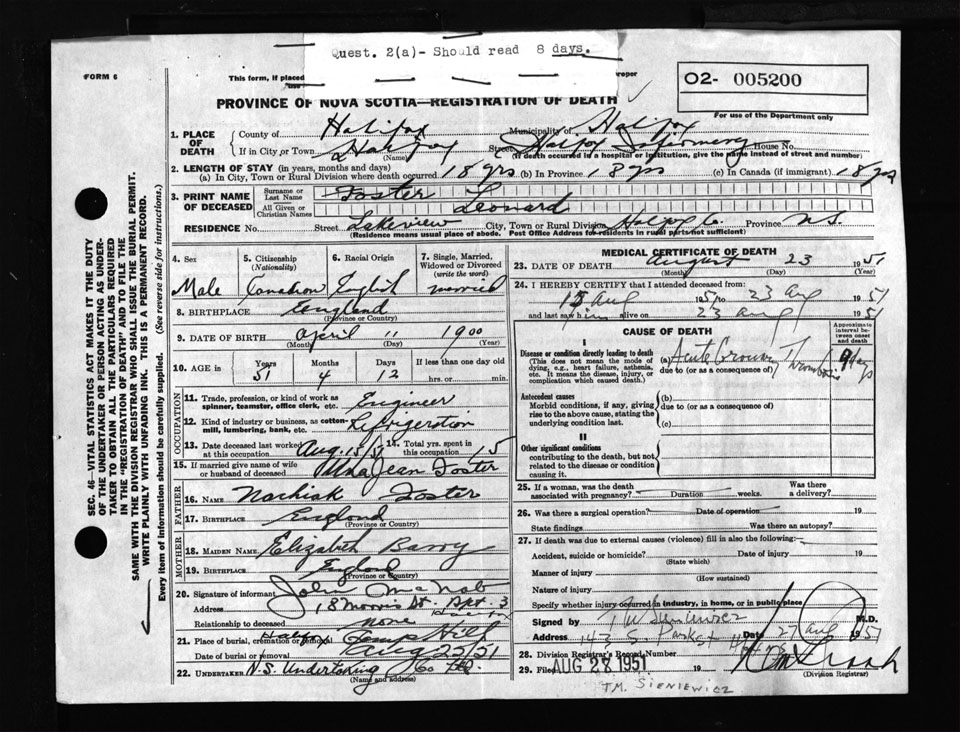 Quest. 2(a)- Should read 8 days.
FORM 6
This form, if placed
proper
O2- 005200
For use of the Department only
PROVINCE OF NOVA SCOTIA—REGISTRATION OF DEATH
1. PLACE OF DEATH
County of Halifax Municipality of Halifax
If in City or Town Halifax (Name) Street Halifax Infirmary House No.
(If death occurred in a hospital or institution, give the name instead of street and number)
2. LENGTH OF STAY (in years, months and days)
(a) In City, Town or Rural Division where death occurred 18 yrs (b) In Province 18 yrs (c) In Canada (if immigrant) 18 yrs
3. PRINT NAME OF DECEASED
Surname or Last Name Foster
All Given or Christian Names Leonard
RESIDENCE No. Street Lakeview City, Town or Rural Division Halifax Co. Province N.S.
(Residence means usual place of abode. Post Office Address for residents in rural parts not sufficient)
4. Sex Male
5. Citizenship (Nationality) Canadian
6. Racial Origin English
7. Single, Married, Widowed or Divorced (write the word) married
8. BIRTHPLACE England
(Province or Country)
9. DATE OF BIRTH April 11 1900
(Month) (Day) (Year)
10. AGE in Years 51 Months 4 Days 12 If less than one day old hrs. or min.
OCCUPATION
11. Trade, profession, or kind of work as spinner, teamster, office clerk, etc. Engineer
12. Kind of industry or business, as cotton-mill, lumbering, bank, etc. Refrigeration
13. Date deceased last worked at this occupation Aug. 15/51 14. Total yrs. spent in this occupation 15
15. If married give name of wife or husband of deceased Jean Foster
FATHER
16. NAME Foster
17. BIRTHPLACE England
(Province or Country)
MOTHER
18. MAIDEN NAME Elizabeth Barry
19. BIRTHPLACE England
(Province or Country)
20. Signature of informant John McNab
Address 18 Morris St. Apt. 3
Relationship to deceased none
21. Place of burial, cremation or removal Halifax Camp Hill
Date of burial or removal Aug 25/51
22. UNDERTAKER N.S. Undertaking Co Ltd.
(Name and address)
MEDICAL CERTIFICATE OF DEATH
23. DATE OF DEATH August 23 1951
(Month) (Day) (Year)
24. I HEREBY CERTIFY that I attended deceased from:
15 Aug 1951 to 23 Aug 1951
and last saw him alive on 23 Aug 1951
CAUSE OF DEATH
Approximate interval between onset and death
I
Disease or condition directly leading to death
(This does not mean the mode of dying, e.g., heart failure, asthenia, etc. It means the disease, injury, or complication which caused death.)
(a) Acute Coronary Thrombosis 9 days
due to (or as a consequence of)
Antecedent causes
Morbid conditions, if any, giving rise to the above cause, stating the underlying condition last.
(b)
due to (or as a consequence of)
(c)
II
Other significant conditions
contributing to the death, but not related to the disease or condition causing it.
25. If a woman, was the death associated with pregnancy? Duration weeks. Was there a delivery?
26. Was there a surgical operation? Date of operation 19
State findings Was there an autopsy?
27. If death was due to external causes (violence) fill in also the following:
Accident, suicide or homicide? Date of injury 19
(State which)
Manner of injury
(How sustained)
Nature of injury
Specify whether injury occurred in industry, in home, or in public place
Signed by M.D.
Address Date 27 Aug 1951
28. Division Registrar's Record Number
29. Filed AUG 28 1951 19
(Division Registrar)
T.M. SIENIEWICZ
SEC. 46—VITAL STATISTICS ACT MAKES IT THE DUTY
OF THE UNDERTAKER OR PERSON ACTING AS UNDER-
TAKER TO OBTAIN ALL THE PARTICULARS REQUIRED
IN THE "REGISTRATION OF DEATH" AND TO FILE THE
SAME WITH THE DIVISION REGISTRAR WHO SHALL ISSUE THE BURIAL PERMIT.
WRITE PLAINLY WITH UNFADING INK. THIS IS A PERMANENT RECORD.
Every item of information should be carefully supplied. (See reverse side for instructions.)